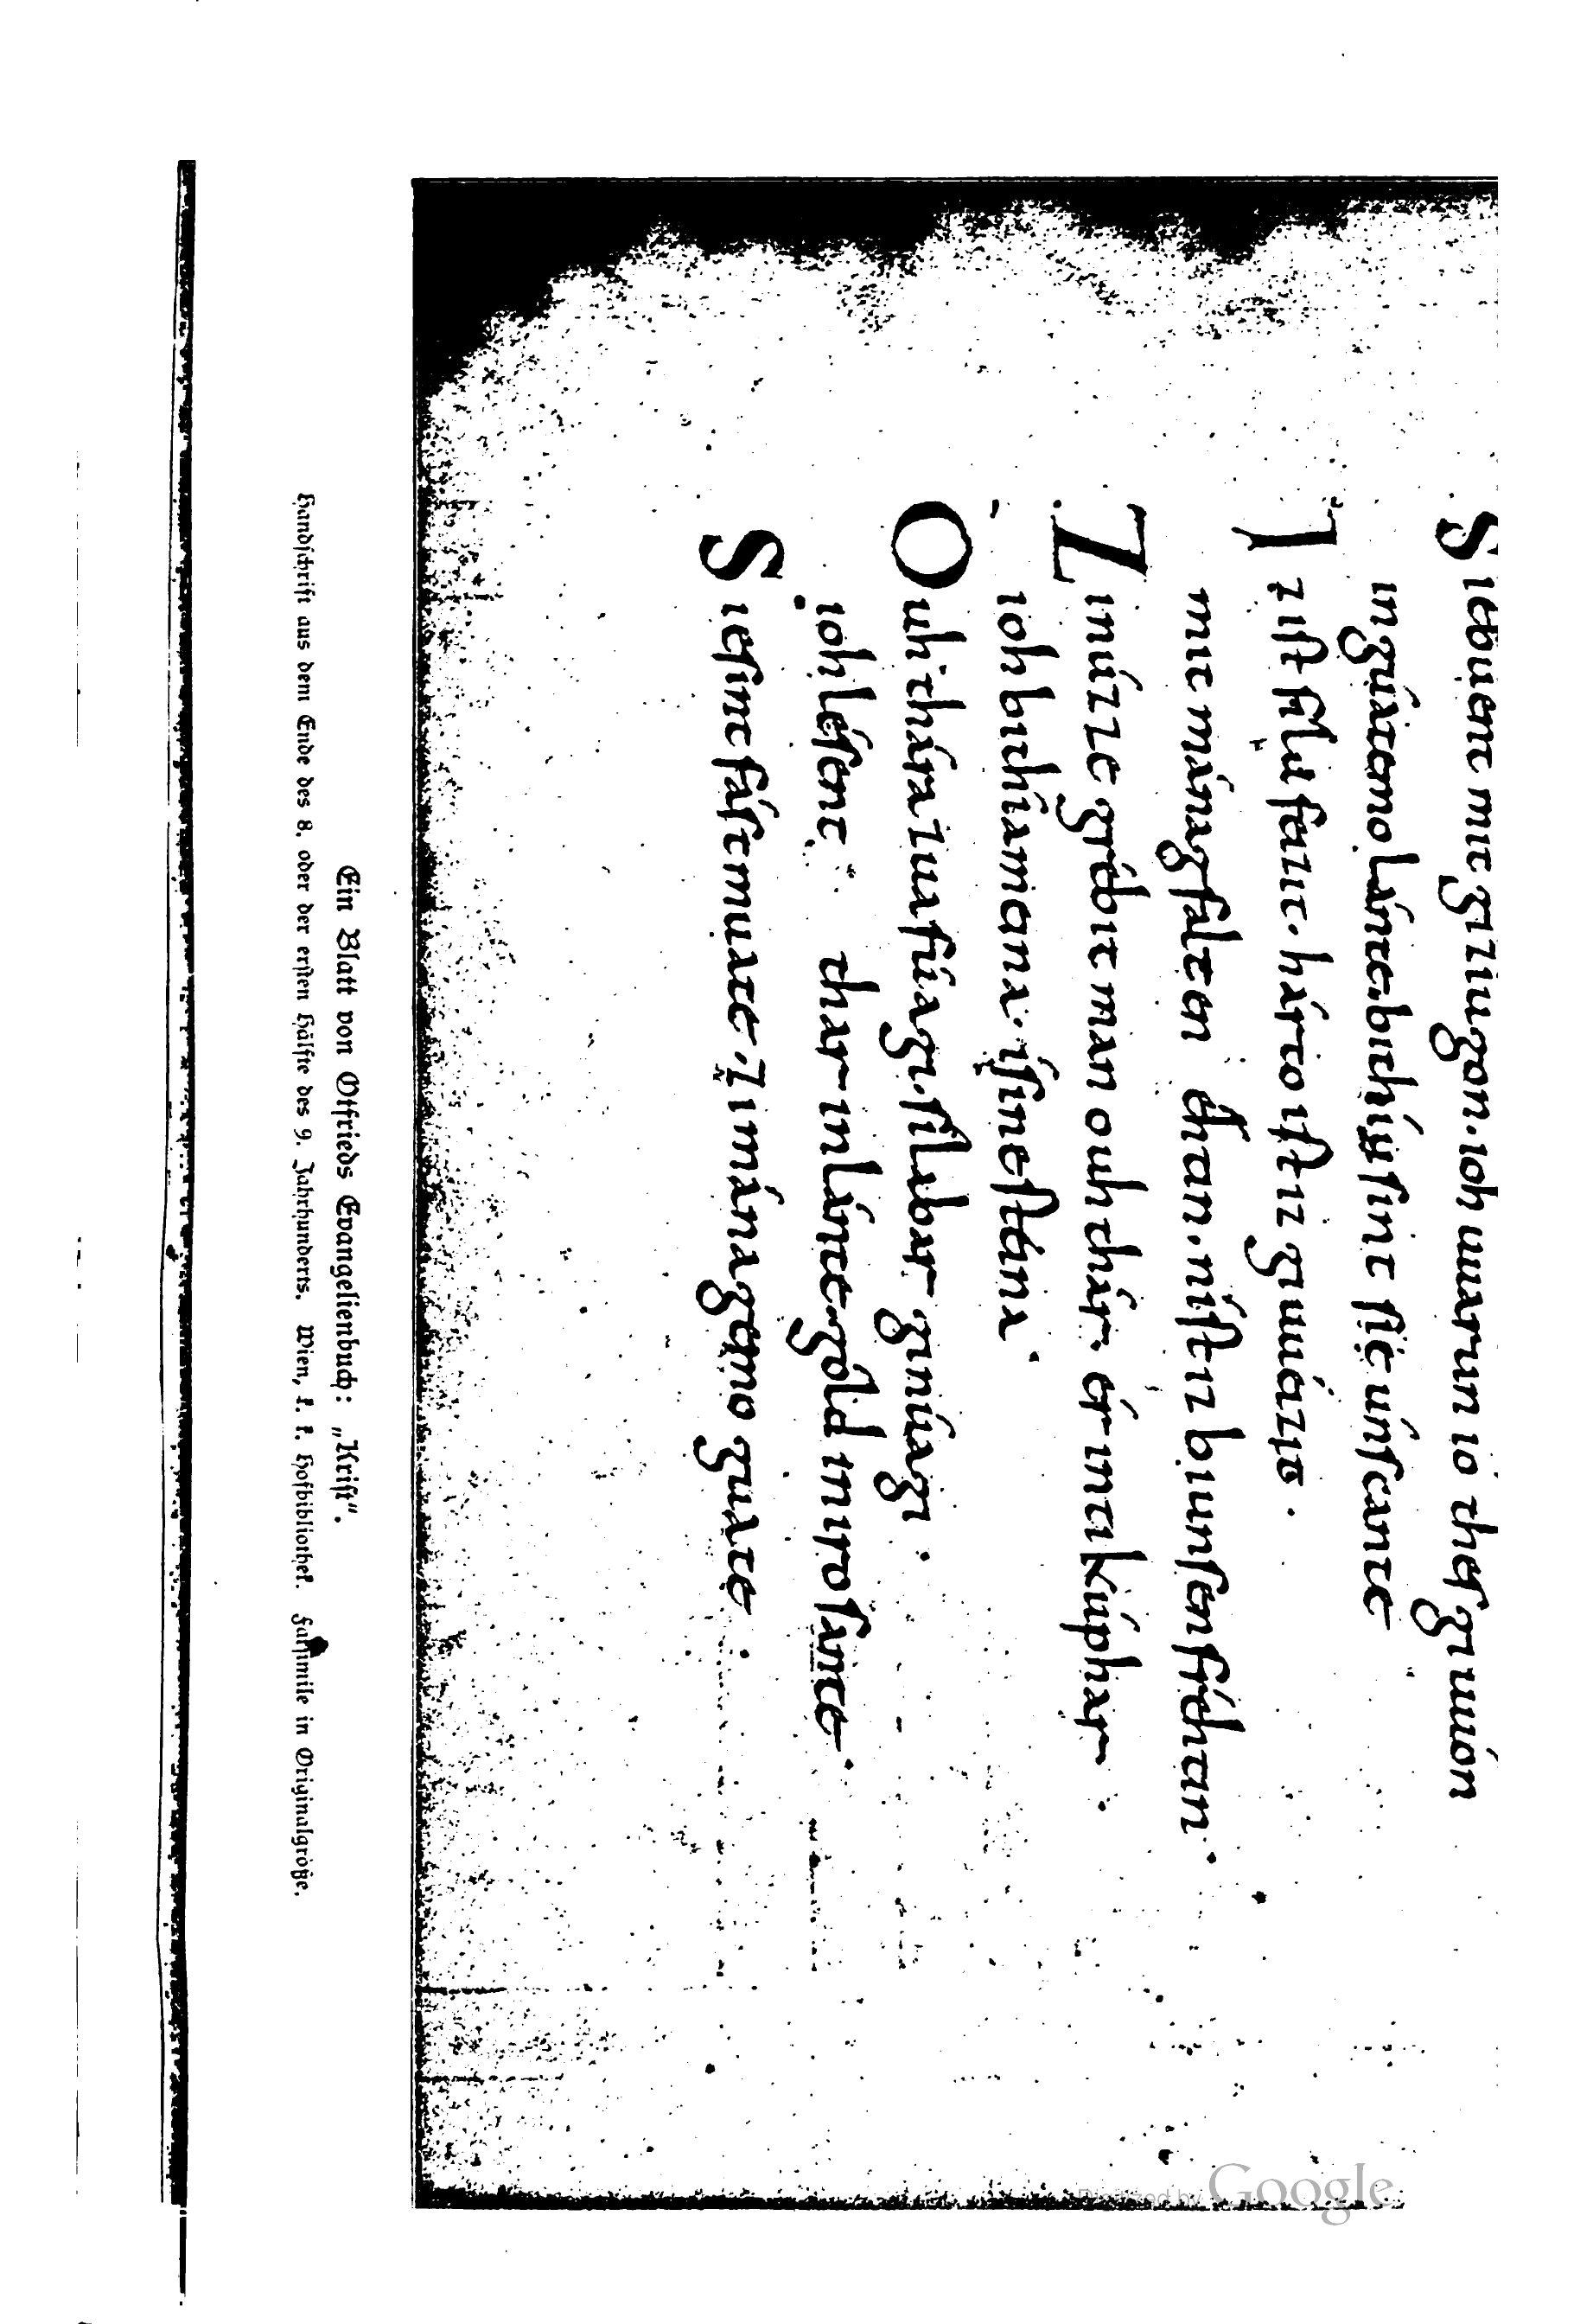 Siebuent mit giziugon· ioh uuarun io thes giuuón
in gúatemo lánte· bithiu sint sie únscante
Iz ist filu feizit· hárto ist iz giuuéizit·
mit mánagfalten éhtin· níst iz bi unsen fréhtin·
Zi núzze grébit man ouh thár· ér inti kúphar·
ioh bi thia méina· ísine stéina·
Ouh thára zua fúagi· sílabar ginúagi·
ioh lésent thar in lánte· gold in iro sante·
Sie sint fástmuate· zi mánagemo guate·
Ein Blatt von Otfrieds Evangelienbuch: „Krist“.
Handschrift aus dem Ende des 8. oder der ersten Hälfte des 9. Jahrhunderts. Wien, k. k. Hofbibliothek. Faksimile in Originalgröße.
Digitized by Google